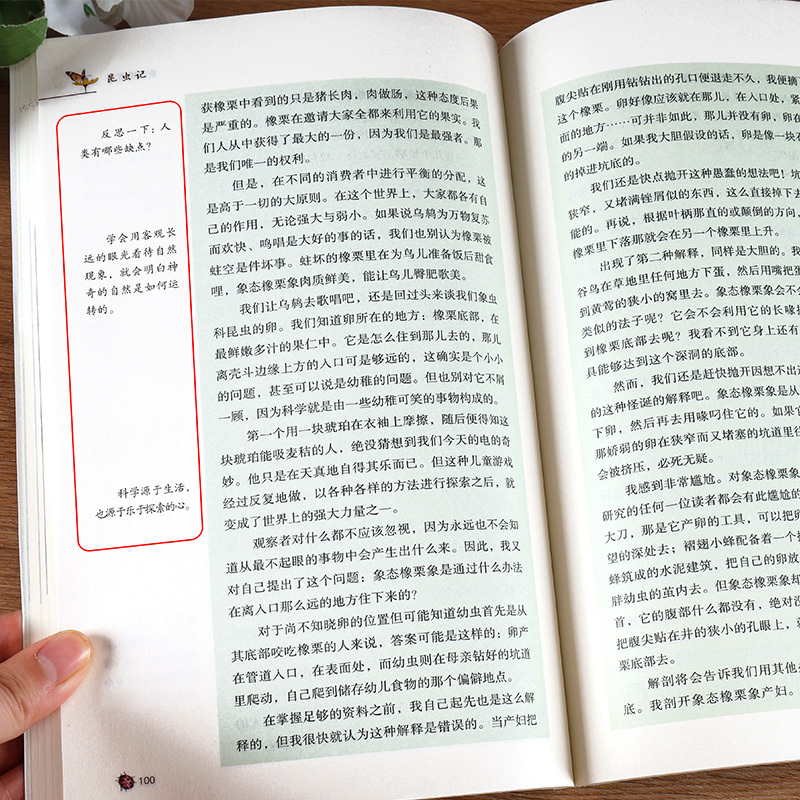 昆虫记
反思一下：人
类有哪些缺点？
学会用客观长
远的眼光看待自然
现象，就会明白神
奇的自然是如何运
转的。
科学源于生活，
也源于乐于探索的心。
获橡栗中看到的只是猪长肉，肉做肠，这种态度后果
是严重的。橡栗在邀请大家全都来利用它的果实。我
们人从中获得了最大的一份，因为我们是最强者。那
是我们唯一的权利。
但是，在不同的消费者中进行平衡的分配，这
是高于一切的大原则。在这个世界上，大家都各有自
己的作用，无论强大与弱小。如果说乌鸫为万物复苏
而欢快、鸣唱是大好的事的话，我们也别认为橡栗被
蛀空是件坏事。蛀坏的橡栗里在为鸟儿准备饭后甜食
哩，象态橡栗象肉质鲜美，能让鸟儿臀肥歌美。
我们让乌鸫去歌唱吧，还是回过头来谈我们象虫
科昆虫的卵。我们知道卵所在的地方：橡栗底部，在
最鲜嫩多汁的果仁中。它是怎么住到那儿去的，那儿
离壳斗边缘上方的入口可是够远的，这确实是个小小
的问题，甚至可以说是幼稚的问题。但也别对它不屑
一顾，因为科学就是由一些幼稚可笑的事物构成的。
第一个用一块琥珀在衣袖上摩擦，随后便得知这
块琥珀能吸麦秸的人，绝没猜想到我们今天的电的奇
妙。他只是在天真地自得其乐而已。但这种儿童游戏
经过反复地做，以各种各样的方法进行探索之后，就
变成了世界上的强大力量之一。
观察者对什么都不应该忽视，因为永远也不会知
道从最不起眼的事物中会产生出什么来。因此，我又
对自己提出了这个问题：象态橡栗象是通过什么办法
在离入口那么远的地方住下来的？
对于尚不知晓卵的位置但可能知道幼虫首先是从
其底部咬吃橡栗的人来说，答案可能是这样的：卵产
在管道入口，在表面处，而幼虫则在母亲钻好的坑道
里爬动，自己爬到储存幼儿食物的那个偏僻地点。
在掌握足够的资料之前，我自己起先也是这么解
释的，但我很快就认为这种解释是错误的。当产妇把
100
腹尖贴在刚用钻钻出的孔口便退走不久，我便摘
这个橡栗。卵好像应该就在那儿，在入口处，紧
面的地方……可并非如此，那儿并没有卵，卵在
的另一端。如果我大胆假设的话，卵是像一块石
的掉进坑底的。
我们还是快点抛开这种愚蠢的想法吧！坑
狭窄，又堵满锉屑似的东西，这么直接掉下去
能的。再说，根据叶柄那直的或颠倒的方向，
橡栗里下落那就会在另一个橡栗里上升。
出现了第二种解释，同样是大胆的。我
谷鸟在草地里任何地方下蛋，然后用嘴把蛋
到黄莺的狭小的窝里去。象态橡栗象会不会
类似的法子呢？它会不会利用它的长喙
到橡栗底部去呢？我看不到它身上还有
具能够达到这个深洞的底部。
然而，我们还是赶快抛开因想不出
的这种怪诞的解释吧。象态橡栗象是从
下卵，然后再去用喙叼住它的。如果它
那娇弱的卵在狭窄而又堵塞的坑道里往
会被挤压，必死无疑。
我感到非常尴尬。对象态橡栗象
研究的任何一位读者都会有此尴尬的
大刀，那是它产卵的工具，可以把卵
望的深处去；褶翅小蜂配备着一个
蜂筑成的水泥建筑，把自己的卵放
胖幼虫的茧内去。但象态橡栗象却
首，它的腹部什么都没有，绝对没
把腹尖贴在井的狭小的孔眼上，
栗底部去。
解剖将会告诉我们用其他
底。我剖开象态橡栗象产妇。